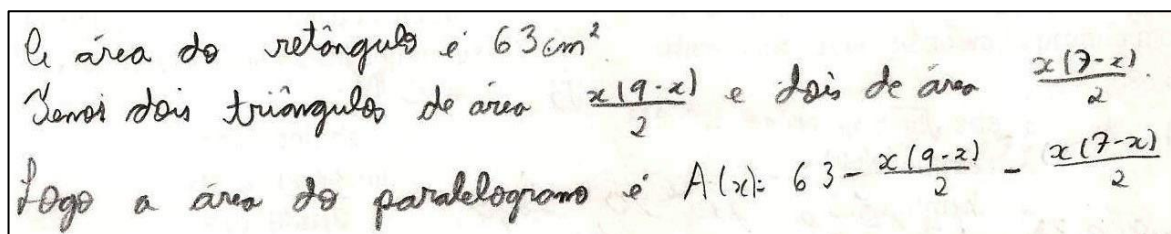 A área do retângulo é 63 cm²
Temos dois triângulos de área x(9-x)/2 e dois de área x(7-x)/2.
Logo a área do paralelogramo é A(x)= 63 - x(9-x)/2 - x(7-x)/2